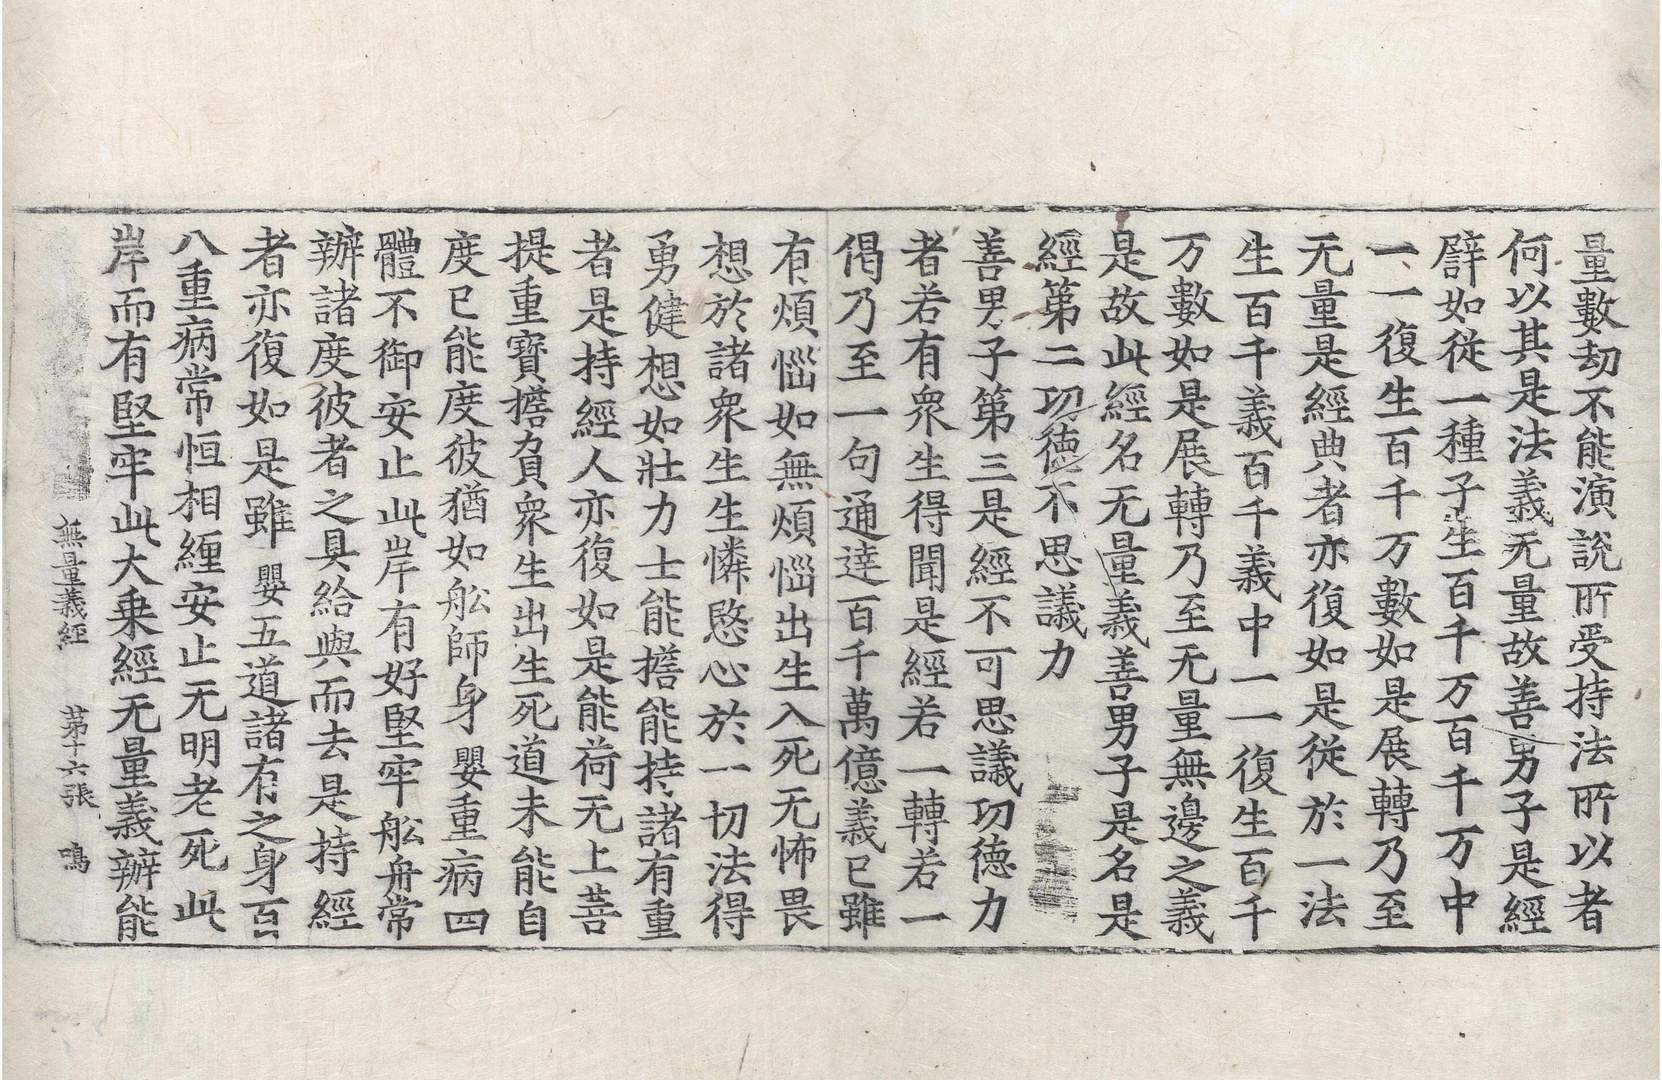 量數劫不能演說所受持法所以者
何以其是法義无量故善男子是經
譬如從一種子生百千万百千万中
一一復生百千万數如是展轉乃至
无量是經典者亦復如是從於一法
生百千義百千義中一一復生百千
万數如是展轉乃至无量無邊之義
是故此經名无量義善男子是名是
經第二功德不思議力
善男子第三是經不可思議功德力
者若有衆生得聞是經若一轉若一
偈乃至一句通達百千萬億義已雖
有煩惱如無煩惱出生入死无怖畏
想於諸衆生生憐愍心於一切法得
勇健想如壯力士能擔能持諸有重
者是持經人亦復如是能荷无上菩
提重寶擔負衆生出生死道未能自
度已能度彼猶如舩師身嬰重病四
體不御安止此岸有好堅牢舩舟常
辦諸度彼者之具給與而去是持經
者亦復如是雖嬰五道諸有之身百
八重病常恒相纏安止无明老死此
岸而有堅牢此大乗經无量義辦能
無量義經 第十六張 鳴